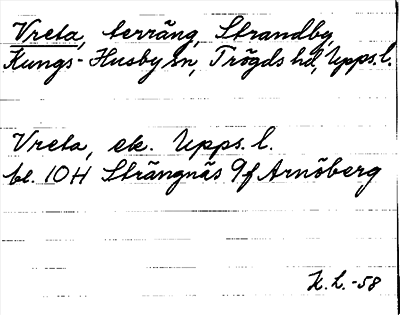 Vreta, terräng, Strandby,
Kungs-Husby sn, Trögds hd, Upps. l.
Vreta, ek. Upps. l.
bl. 10H Strängnäs 9f Arnöberg
K. L. -58